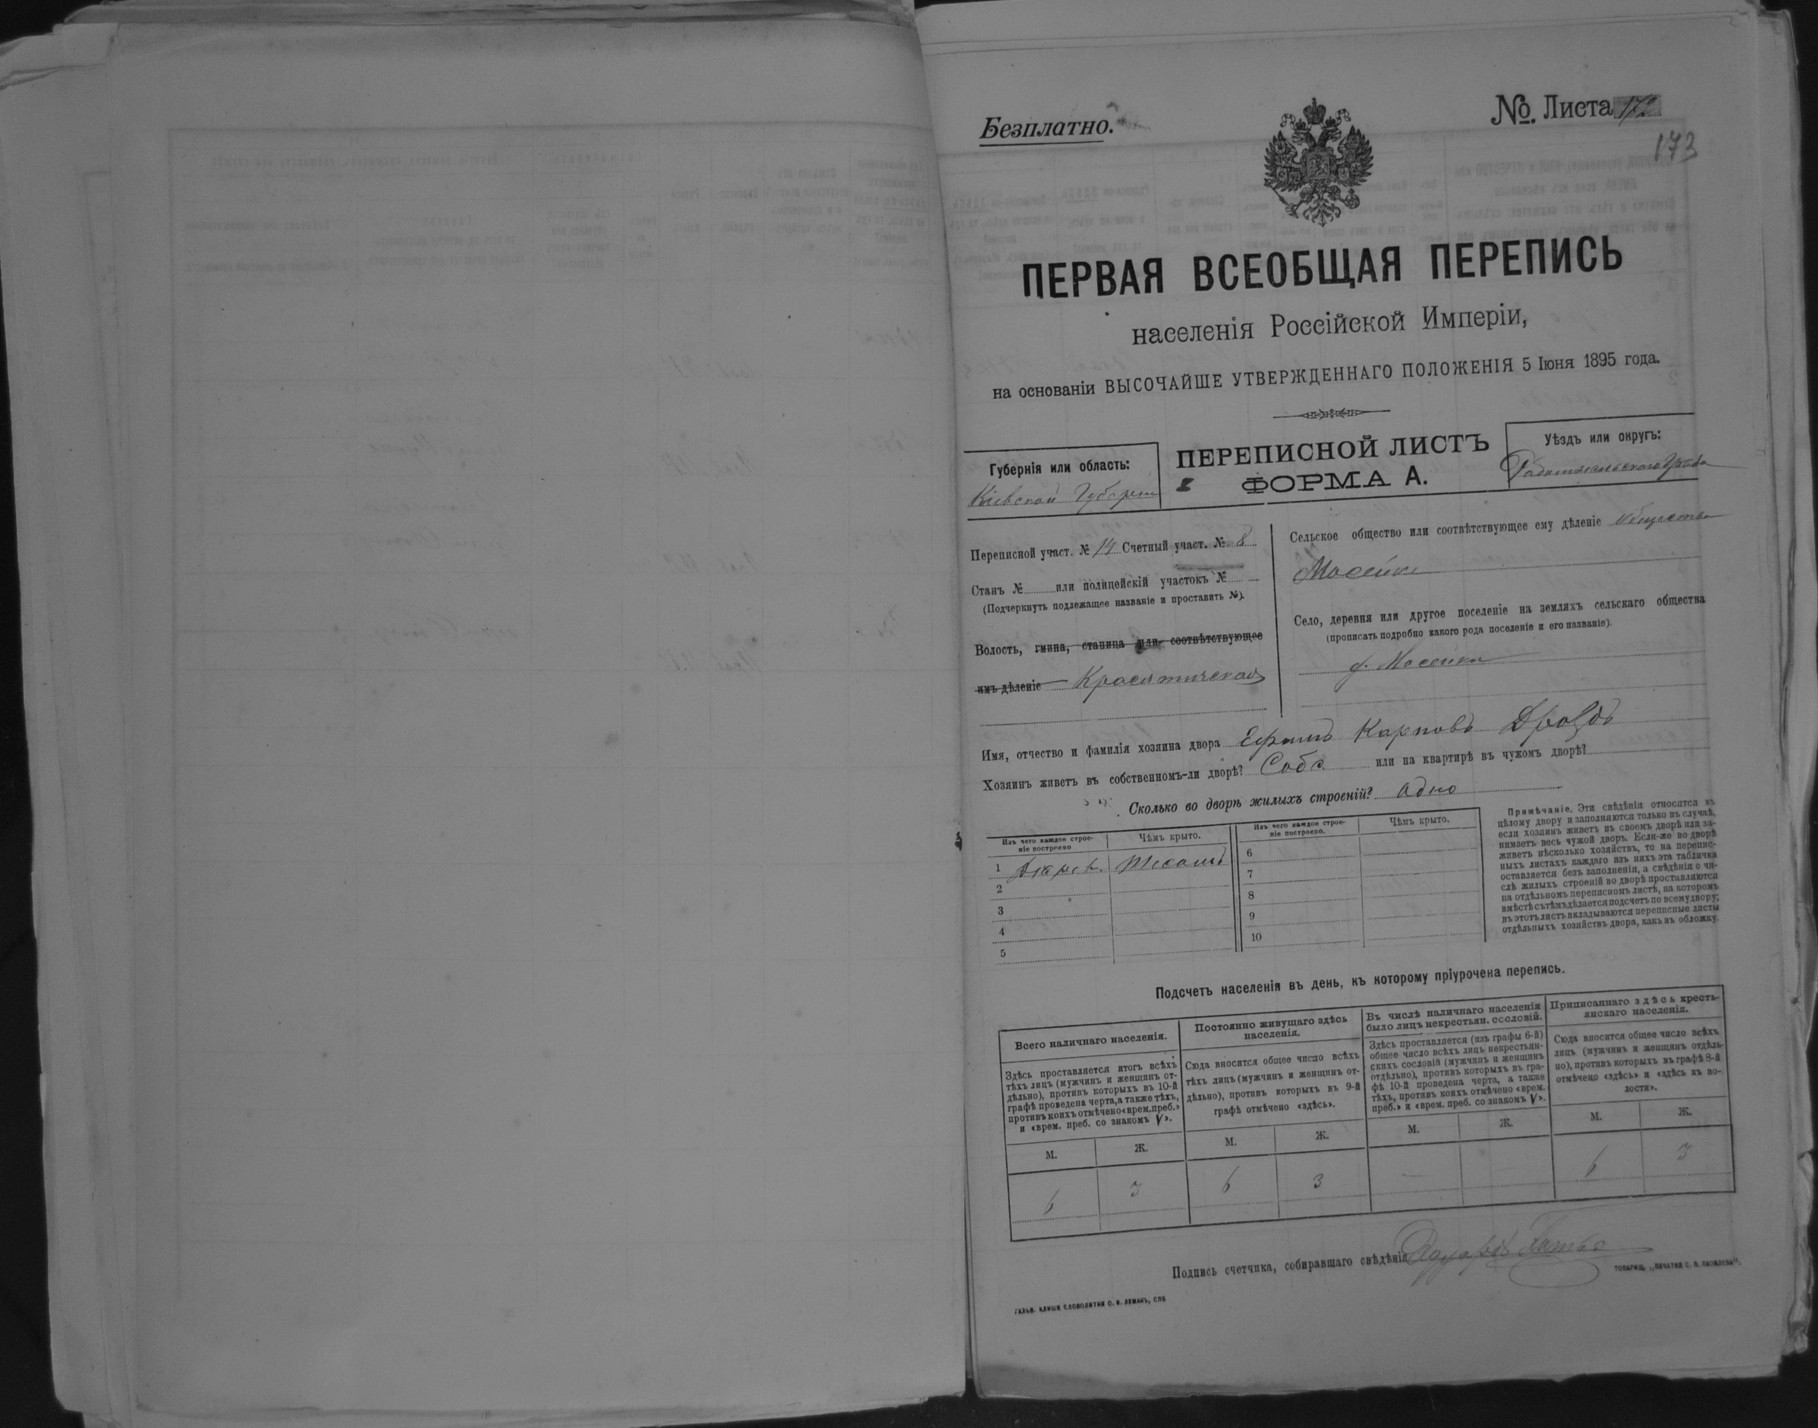 Безплатно.
№. Листа 172
173
ПЕРВАЯ ВСЕОБЩАЯ ПЕРЕПИСЬ
населенія Россійской Имперіи,
на основаніи ВЫСОЧАЙШЕ УТВЕРЖДЕННАГО ПОЛОЖЕНІЯ 5 Іюня 1895 года.
Губернія или область:
Кіевской Губерніи
ПЕРЕПИСНОЙ ЛИСТЪ
ФОРМА А.
Уѣздъ или округъ:
Радомысльскаго Уѣзда
Переписной участ. № 14 Счетный участ. № 8
Станъ № или полицейскій участокъ №
(Подчеркнуть подлежащее названіе и проставить №).
Волость, гмина, станица или соотвѣтствующее
имъ дѣленіе Красятическая
Сельское общество или соотвѣтствующее ему дѣленіе общество
Мосейки
Село, деревня или другое поселеніе на земляхъ сельскаго общества
(прописать подробно какого рода поселеніе и его названіе).
д. Мосейки
Имя, отчество и фамилія хозяина двора Ефимъ Карповъ Дроздъ
Хозяинъ живетъ въ собственномъ-ли дворѣ? Собс. или на квартирѣ въ чужомъ дворѣ?
Сколько во дворѣ жилыхъ строеній? Одно
Изъ чего каждое строеніе построено
Чѣмъ крыто.
Изъ чего каждое строеніе построено.
Чѣмъ крыто.
1
2
3
4
5
6
7
8
9
10
Примѣчаніе. Эти свѣдѣнія относятся къ
цѣлому двору и заполняются только въ случаѣ,
если хозяинъ живетъ въ своемъ дворѣ или за-
нимаетъ весь чужой дворъ. Если-же во дворѣ
живетъ нѣсколько хозяйствъ, то на перепис-
ныхъ листахъ каждаго изъ нихъ эта табличка
оставляется безъ заполненія, а свѣдѣнія о чи-
слѣ жилыхъ строеній во дворѣ проставляются
на отдѣльномъ переписномъ листѣ, на которомъ
вмѣстѣ съ тѣмъ дѣлается подсчетъ по всему двору;
въ этотъ листъ вкладываются переписные листы
отдѣльныхъ хозяйствъ двора, какъ въ обложку.
Подсчетъ населенія въ день, къ которому пріурочена перепись.
Всего наличнаго населенія.
Здѣсь проставляется итогъ всѣхъ
тѣхъ лицъ (мужчинъ и женщинъ от-
дѣльно), противъ которыхъ въ 10-й
графѣ проведена черта, а также тѣхъ,
противъ коихъ отмѣчено «врем. преб.»
и «врем. преб. со знакомъ V».
Постоянно живущаго здѣсь
населенія.
Сюда вносится общее число всѣхъ
тѣхъ лицъ (мужчинъ и женщинъ от-
дѣльно), противъ которыхъ въ 9-й
графѣ отмѣчено «здѣсь».
Въ числѣ наличнаго населенія
было лицъ некрестьян. сословій.
Здѣсь проставляется (изъ графы 6-й)
общее число всѣхъ лицъ некрестьян-
скихъ сословій (мужчинъ и женщинъ
отдѣльно), противъ которыхъ въ гра-
фѣ 10-й проведена черта, а также
тѣхъ, противъ коихъ отмѣчено «врем.
преб.» и «врем. преб. со знакомъ V».
Приписаннаго здѣсь кресть-
янскаго населенія.
Сюда вносится общее число всѣхъ
лицъ (мужчинъ и женщинъ отдѣль-
но), противъ которыхъ въ графѣ 8-й
отмѣчено «здѣсь» и «здѣсь въ во-
лости».
М. Ж. М. Ж. М. Ж. М. Ж.
6 3 6 3 — 6 3
Подпись счетчика, собиравшаго свѣдѣнія
ГАЛЬВ. КЛИШЕ СЛОВОЛИТНИ О. И. ЛЕМАНЪ, СПБ
ТОВАРИЩ. „ПЕЧАТНЯ С. П. ЯКОВЛЕВА".